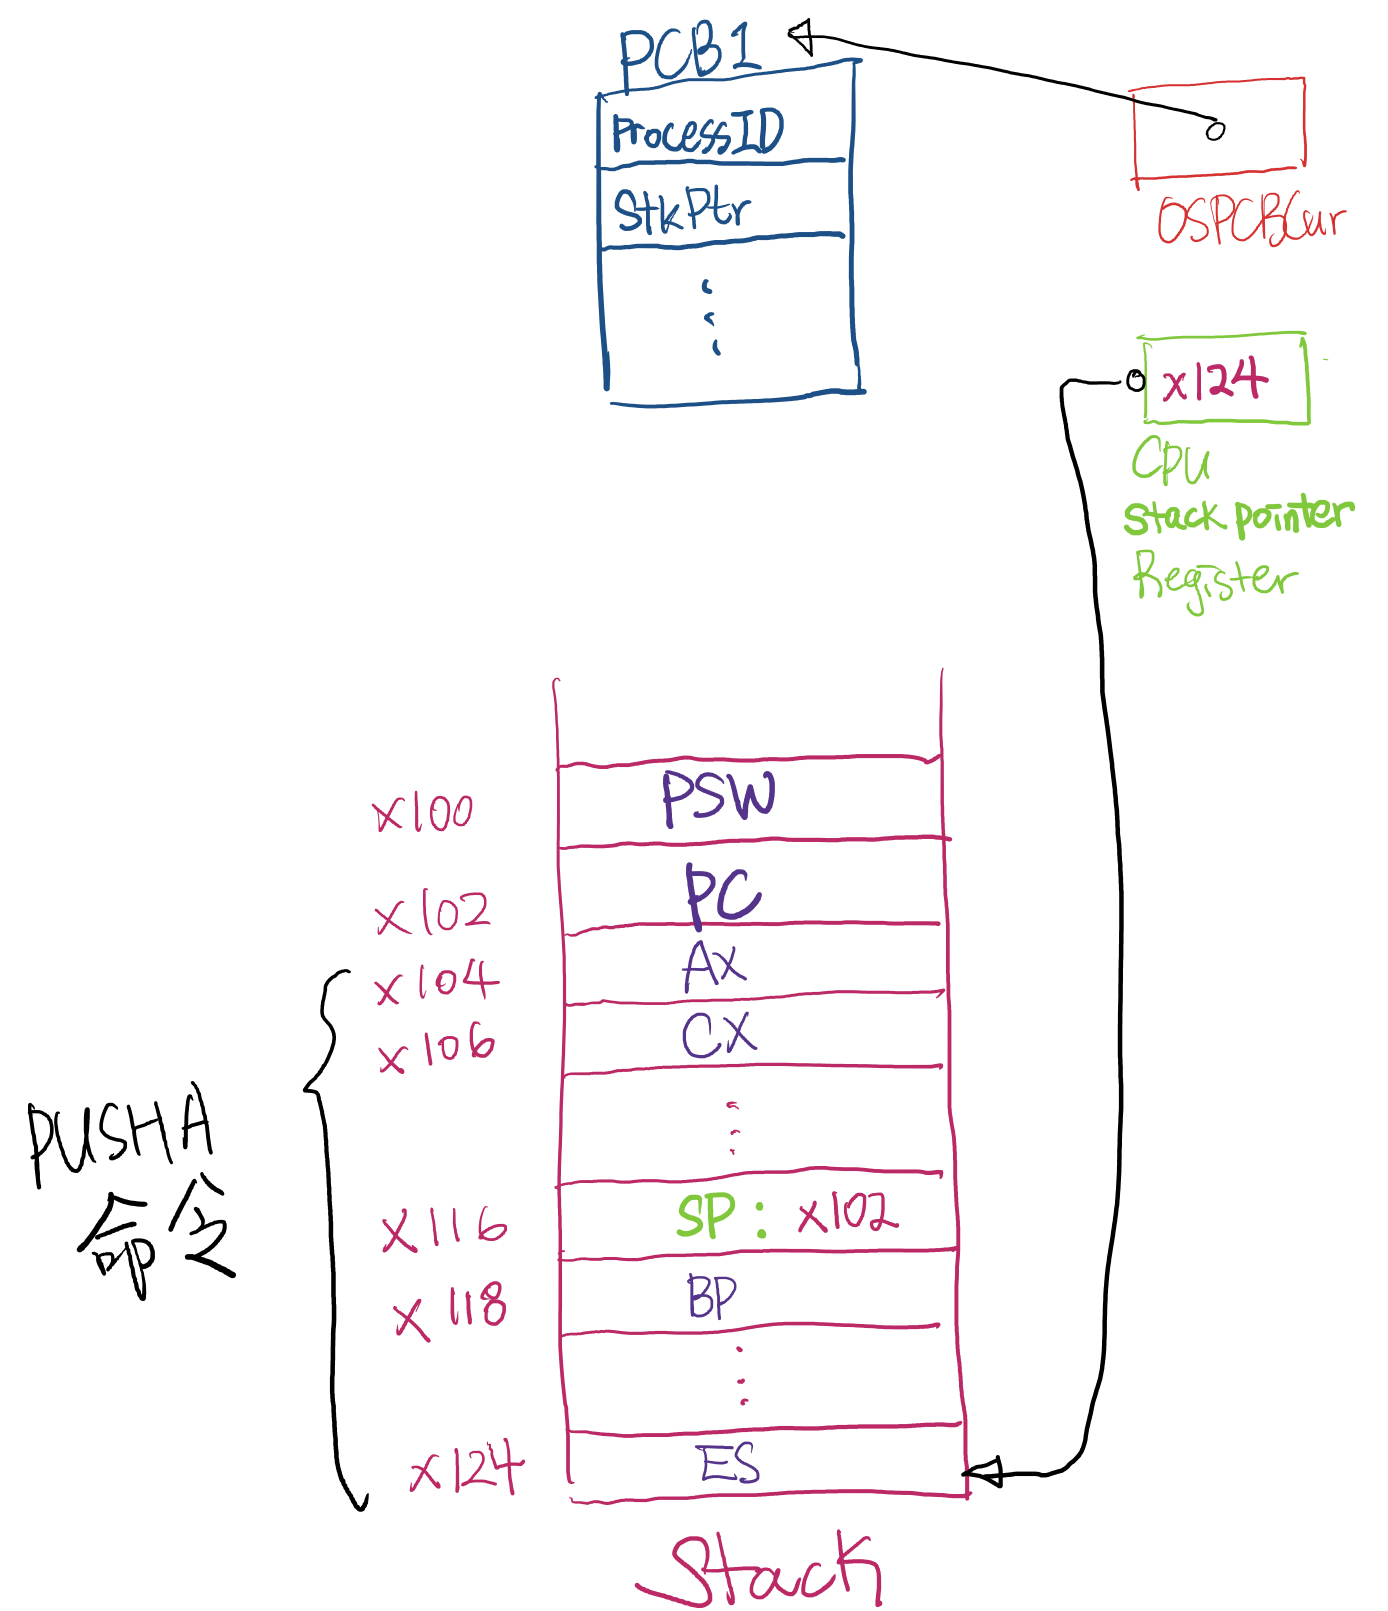 PCB1
ProcessID
StkPtr
OSPCBCur
x124
CPU
stack pointer
Register
x100 PSW
x102 PC
x104 AX
x106 CX
PUSHA
命令
x116 SP: x102
x118 BP
x124 ES
Stack